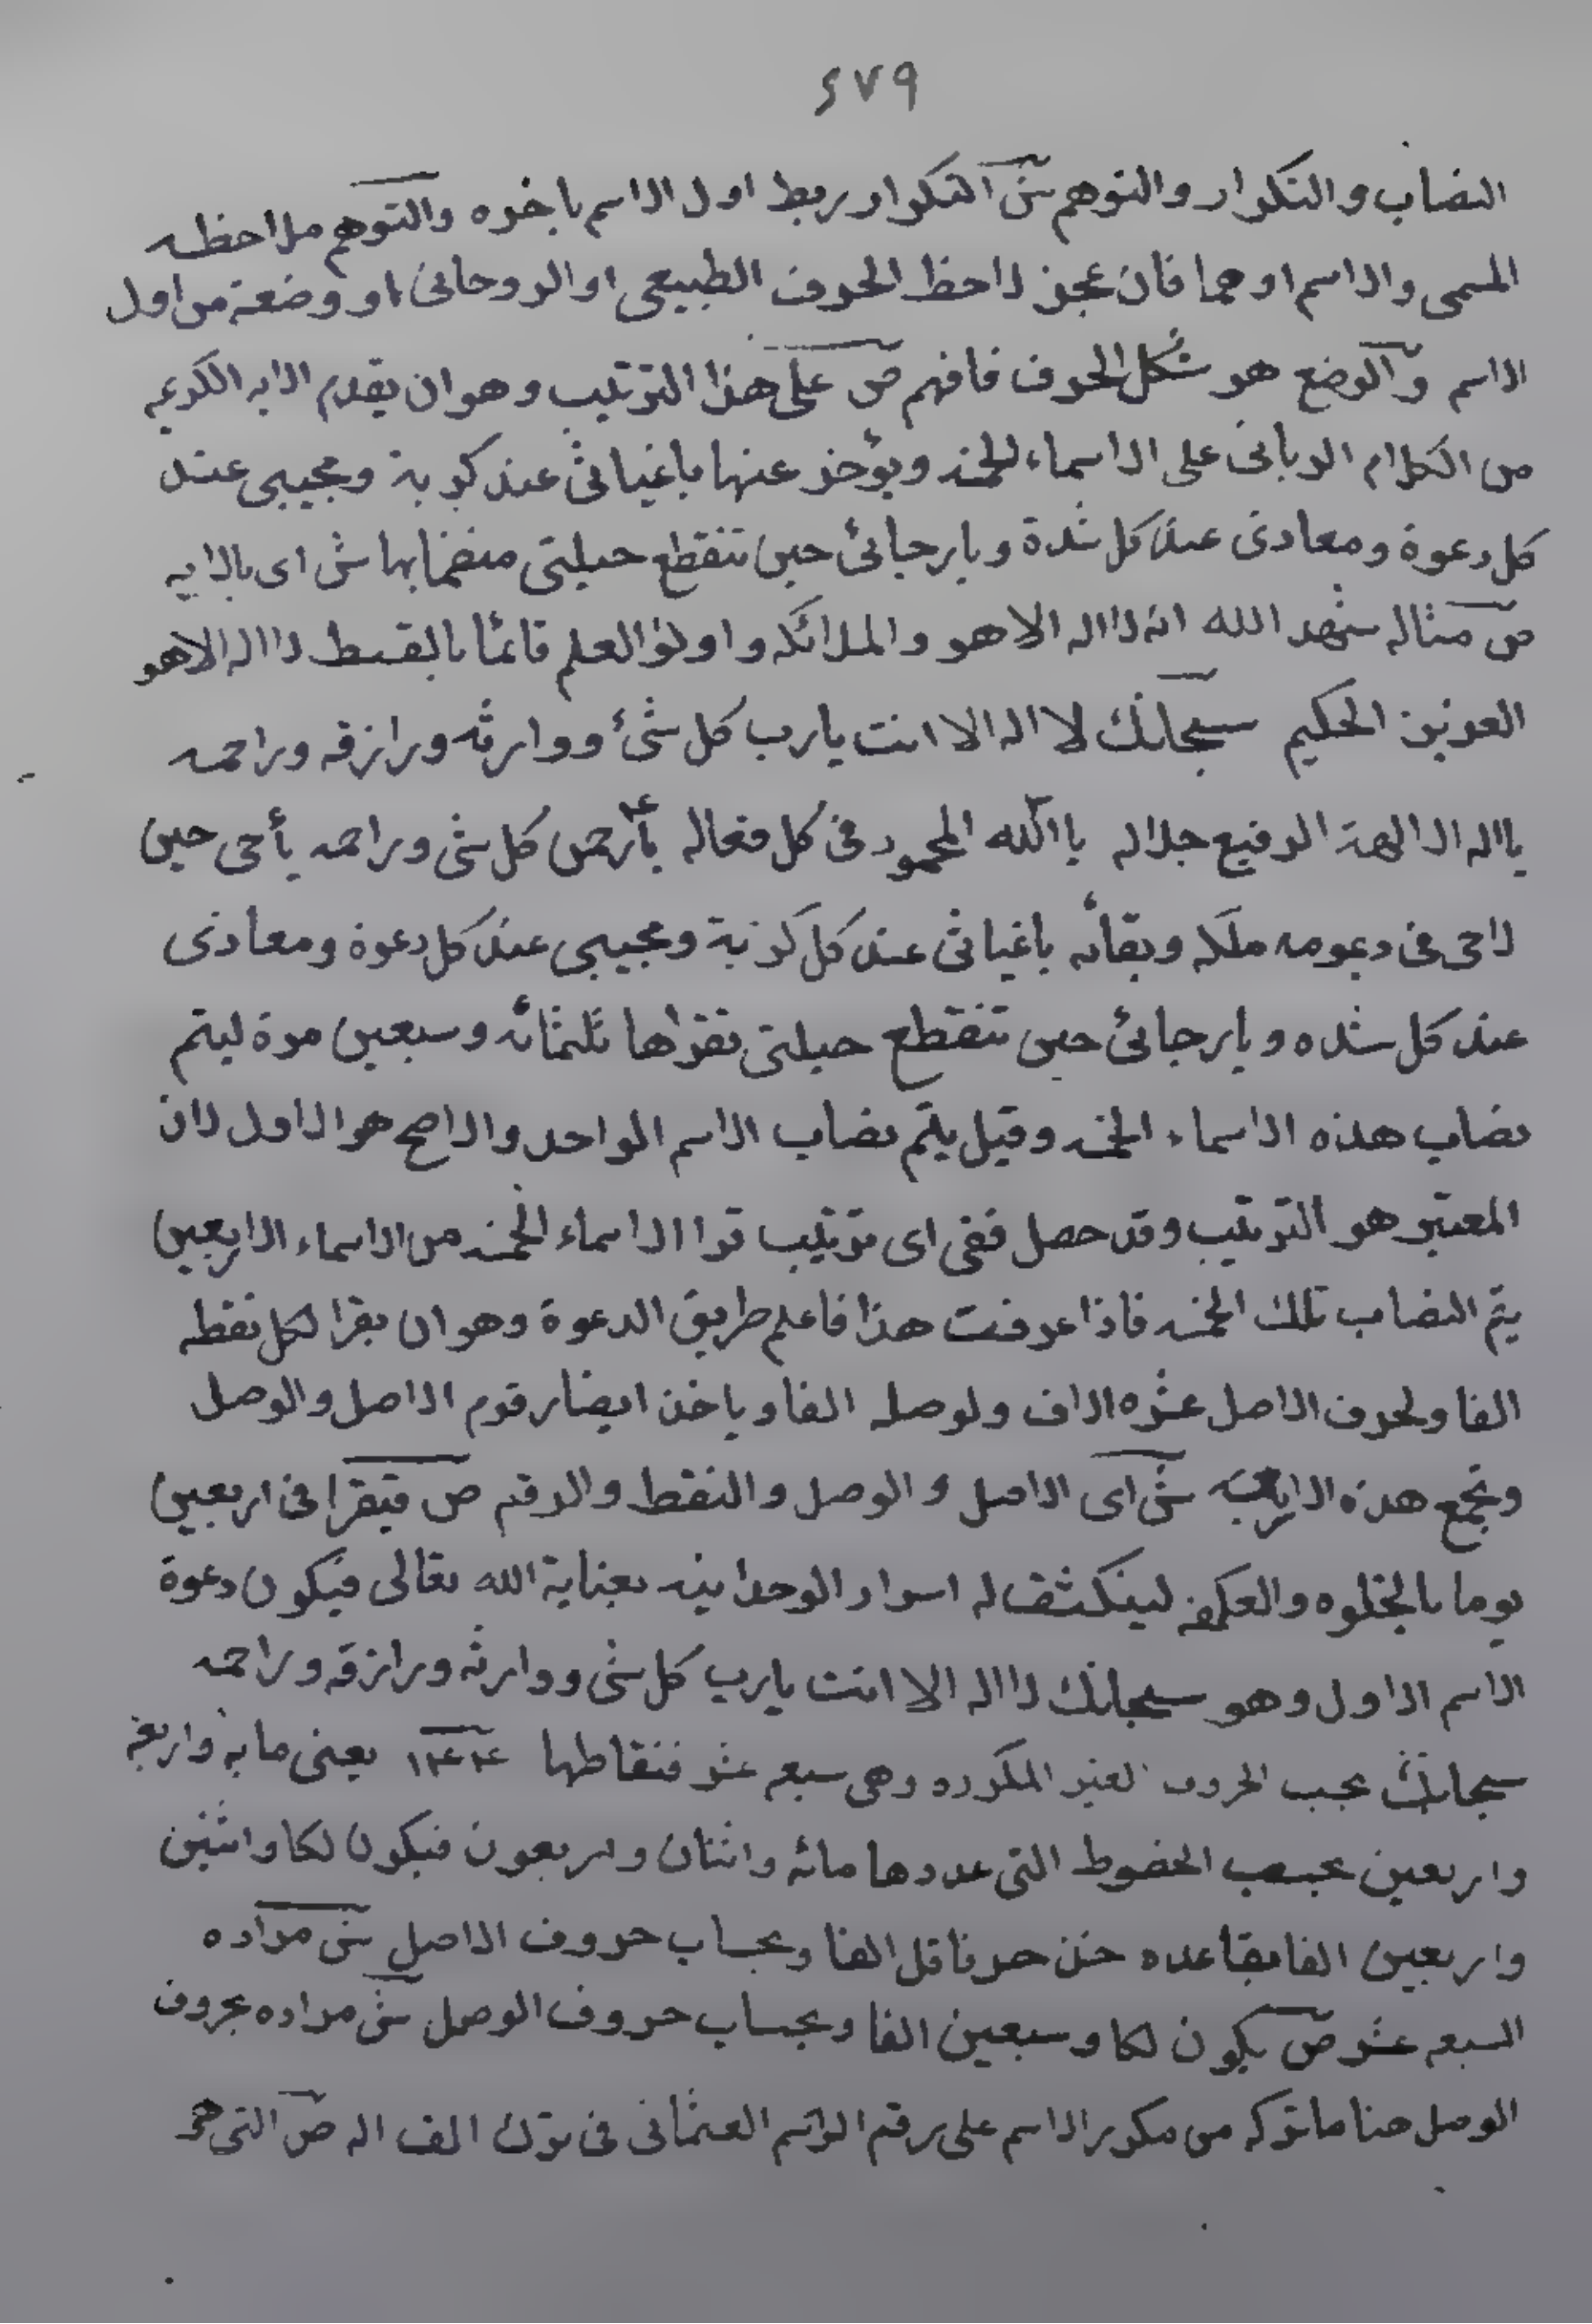 ٤٧٩
النصاب والتكرار والتوهم ش التكرار ربط اول الاسم باخره والتوهم ملاحظه
المسمى والاسم او هما فان عجز لاحظ الحرف الطبيعى او الروحانى او وضعة من اول
الاسم والوضع هو شكل الحرف فافهم ص على هذا الترتيب وهو ان يقدم الايه الكريمه
من الكلام الربانى على الاسماء الخمسه ويؤخر عنها ياغياثى عند كربة ومجيبى عند
كل دعوة ومعاذى عند كل شدة ويارجائى حين تنقطع حيلتى منضما بها ش اى بالايه
ص مثاله شهد الله انه لااله الاهو والملائكه واولوا العلم قائما بالقسط لااله الاهو
العزيز الحكيم سبحانك لا اله الا انت يارب كل شئ ووارثه ورازقه وراحمه
يااله الالهة الرفيع جلاله ياالله المحمود فى كل فعاله يارحمن كل شى وراحمه ياحى حين
لاحى فى ديمومه ملكه وبقائه ياغياثى عند كل كربة ومجيبى عند كل دعوة ومعاذى
عند كل شده ويارجائى حين تنقطع حيلتى تقراها ثلثمائه وسبعين مرة ليتم
نصاب هذه الاسماء الخمسه وقيل يتم نصاب الاسم الواحد والاصح هو الاول لان
المعتبر هو الترتيب وقد حصل ففى اى ترتيب قرا الاسماء الخمسه من الاسماء الاربعين
يتم النصاب تلك الخمسه فاذا عرفت هذا فاعلم طريق الدعوة وهو ان يقرا لكل نقطه
الفا ولحرف الاصل عشره الاف ولوصله الفا وياخذ ايضا رقوم الاصل والوصل
وتجمع هذه الاربعه ش اى الاصل والوصل والنقط والرقم ص فيقرا فى اربعين
يوما بالخلوه والعكفه لينكشف له اسرار الوحدانيه بعناية الله تعالى فيكون دعوة
الاسم الاول وهو سبحانك لااله الا انت يارب كل شى ووارثه ورازقه وراحمه
سبحانك بحسب الحروف الغير المكرره وهى سبعه عشر فنقاطها يعنى مايه واربعة
واربعين بحسب الخطوط التى عددها مائه واثنان واربعون فيكون لكا واثنين
واربعين الفا بقاعده خذ حرفا قل الفا وبحساب حروف الاصل ش مراده
السبعه عشر ص يكون لكا وسبعين الفا وبحساب حروف الوصل ش مراده بحروف
الوصل هنا ماتركه من مكرر الاسم على رقم الرسم العثمانى فى ترك الف اله ص التى هى